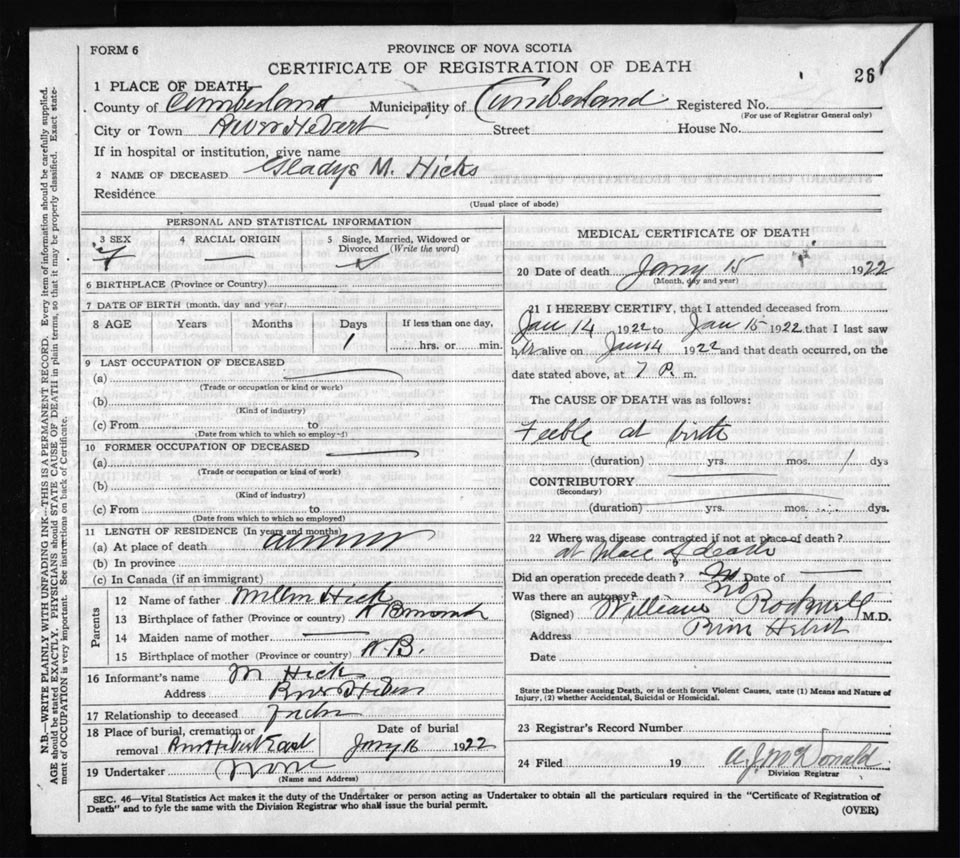 FORM 6
PROVINCE OF NOVA SCOTIA
CERTIFICATE OF REGISTRATION OF DEATH
26
1 PLACE OF DEATH
County of Cumberland Municipality of Cumberland Registered No.
(For use of Registrar General only)
City or Town River Hebert Street House No.
If in hospital or institution, give name
2 NAME OF DECEASED Gladys M. Hicks
Residence
(Usual place of abode)
PERSONAL AND STATISTICAL INFORMATION
3 SEX 4 RACIAL ORIGIN 5 Single, Married, Widowed or Divorced (Write the word)
F — S
6 BIRTHPLACE (Province or Country)
7 DATE OF BIRTH (month, day and year)
8 AGE Years Months Days If less than one day,
1 hrs. or min.
9 LAST OCCUPATION OF DECEASED
(a)
(Trade or occupation or kind or work)
(b)
(Kind of industry)
(c) From to
(Date from which to which so employed)
10 FORMER OCCUPATION OF DECEASED
(a)
(Trade or occupation or kind of work)
(b)
(Kind of industry)
(c) From to
(Date from which to which so employed)
11 LENGTH OF RESIDENCE (In years and months)
(a) At place of death
(b) In province
(c) In Canada (if an immigrant)
Parents
12 Name of father Hick
13 Birthplace of father (Province or country)
14 Maiden name of mother —
15 Birthplace of mother (Province or country) N.B.
16 Informant's name M Hick
Address River Hebert
17 Relationship to deceased Father
18 Place of burial, cremation or removal River Hebert East Date of burial Jany 16 1922
19 Undertaker None
(Name and Address)
MEDICAL CERTIFICATE OF DEATH
20 Date of death Jany 15 1922
(Month, day and year)
21 I HEREBY CERTIFY, that I attended deceased from
Jan 14 1922 to Jan 15 1922 that I last saw
her alive on Jan 14 1922 and that death occurred, on the
date stated above, at 7 P. m.
The CAUSE OF DEATH was as follows:
Feeble at birth
(duration) yrs. mos. 1 dys
CONTRIBUTORY
(Secondary)
(duration) yrs. mos. dys.
22 Where was disease contracted if not at place of death?
at place of death
Did an operation precede death? No Date of —
Was there an autopsy? No
(Signed) William Rockwell M.D.
Address River Hebert
Date
State the Disease causing Death, or in death from Violent Causes, state (1) Means and Nature of
Injury, (2) whether Accidental, Suicidal or Homicidal.
23 Registrar's Record Number
24 Filed 19 A. J. McDonald
Division Registrar
SEC. 46—Vital Statistics Act makes it the duty of the Undertaker or person acting as Undertaker to obtain all the particulars required in the "Certificate of Registration of
Death" and to fyle the same with the Division Registrar who shall issue the burial permit.
(OVER)
N.B.—WRITE PLAINLY WITH UNFADING INK—THIS IS A PERMANENT RECORD. Every item of information should be carefully supplied.
AGE should be stated EXACTLY. PHYSICIANS should STATE CAUSE OF DEATH in plain terms, so that it may be properly classified. Exact state-
ment of OCCUPATION is very important. See instructions on back of Certificate.